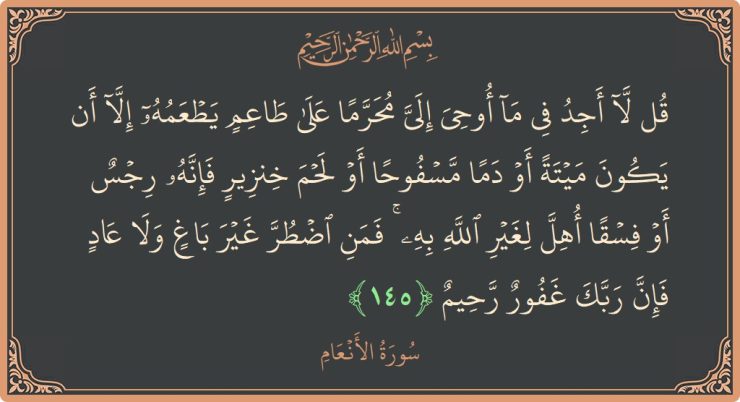 بِسْمِ اللهِ الرَّحْمٰنِ الرَّحِيْمِ
قُل لَّآ أَجِدُ فِي مَآ أُوحِيَ إِلَيَّ مُحَرَّمًا عَلَىٰ طَاعِمٖ يَطۡعَمُهُۥٓ إِلَّآ أَن
يَكُونَ مَيۡتَةً أَوۡ دَمٗا مَّسۡفُوحًا أَوۡ لَحۡمَ خِنزِيرٖ فَإِنَّهُۥ رِجۡسٌ
أَوۡ فِسۡقًا أُهِلَّ لِغَيۡرِ ٱللَّهِ بِهِۦۚ فَمَنِ ٱضۡطُرَّ غَيۡرَ بَاغٖ وَلَا عَادٖ
فَإِنَّ رَبَّكَ غَفُورٞ رَّحِيمٞ ﴿١٤٥﴾
سُورَةُ الأَنْعَامِ